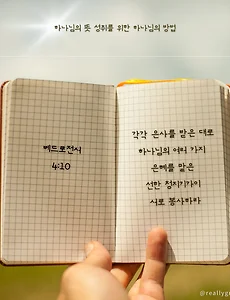 하나님의 뜻 성취를 위한 하나님의 방법
베드로전서
4:10
각각 은사를 받은 대로
하나님의 여러 가지
은혜를 맡은
선한 청지기같이
서로 봉사하라